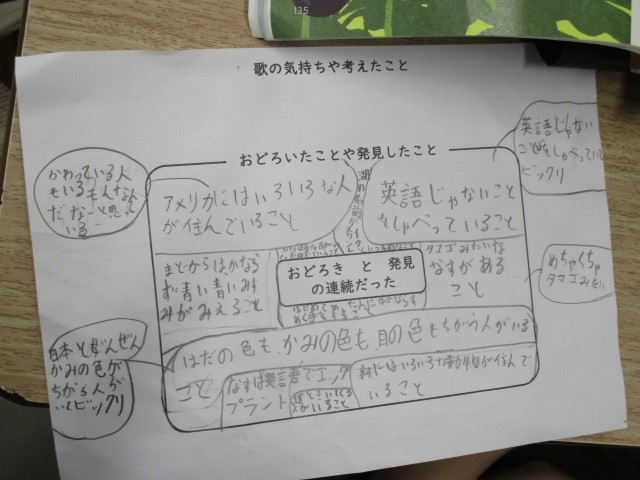 135
歌の気持ちや考えたこと
おどろいたことや発見したこと
かわっている人
もいるもんなん
だなーと思え
いる
アメリカにはいろいろな人
が住んでいること
英語じゃないこと
をしゃべっていること
英語じゃない
ことをしゃべっていて
ビックリ
まどからはかなら
ず青い青いみず
みがみえること
おどろき と 発見
の連続だった
タマゴみたいな
なすがある
こと
めちゃくちゃ
タマゴみたい
はだの色も、かみの色も、目の色もちがう人がいる
こと
日本とぜんぜん
かみの色が
ちがう人が
いてビックリ
なすは英語でエッグ
プラント
林にはいろいろな動物が住んで
いること